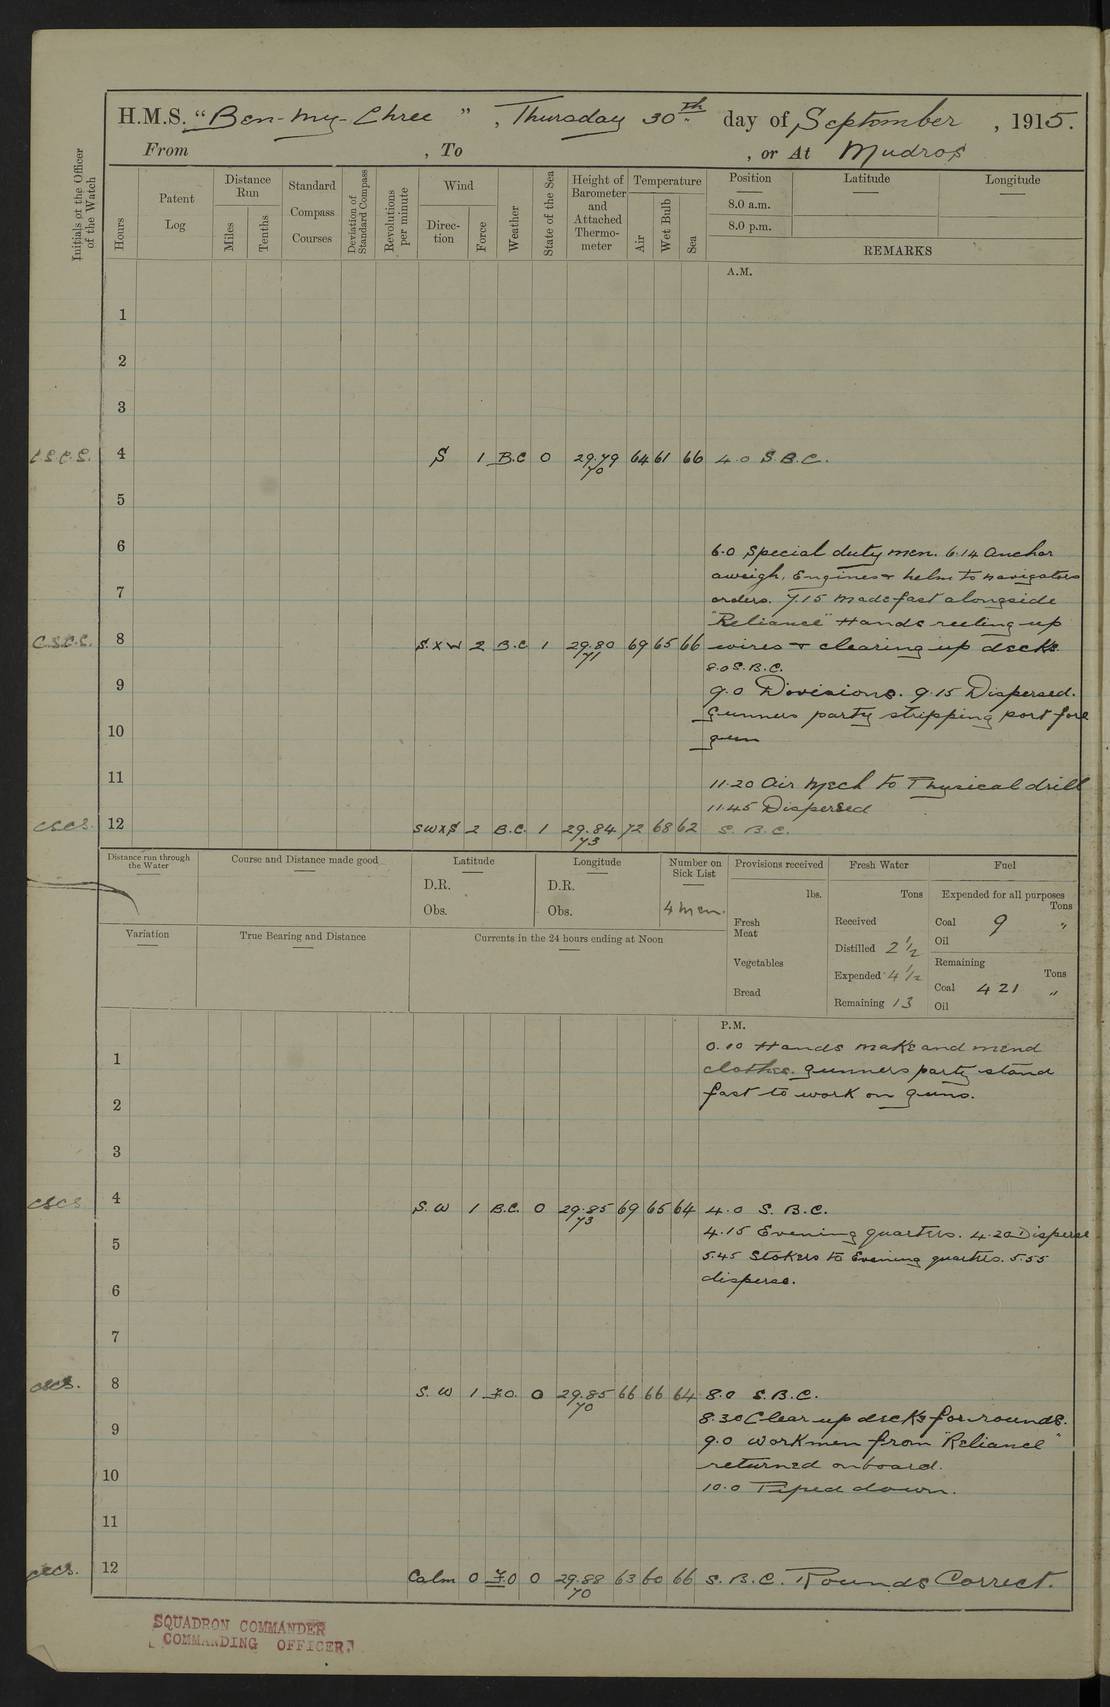 H.M.S. "Ben-my-Chree", Thursday 30th day of September, 1915.
From , To , or At Mudros
Initials of the Officer of the Watch
Hours
Patent Log
Distance Run
Miles
Tenths
Standard Compass Courses
Deviation of Standard Compass
Revolutions per minute
Wind
Direction
Force
Weather
State of the Sea
Height of Barometer and Attached Thermometer
Temperature
Air
Wet Bulb
Sea
Position Latitude Longitude
8.0 a.m.
8.0 p.m.
REMARKS
A.M.
1
2
3
C.S.C.S. 4 S 1 B.C 0 29.79 70 64 61 66 4.0 S.B.C.
5
6
6.0 Special duty men. 6.14 Anchor
aweigh. Engines & helm to navigators
7
orders. 7.15 Made fast alongside
"Reliance" Hands reeling up
C.S.C.S. 8 S.XW 2 B.C 1 29.80 71 69 65 66 wires & clearing up decks
8.0 S.B.C.
9
9.0 Divisions. 9.15 Dispersed.
Gunners party stripping port fore
10
gun
11
11.20 Air Mech to Physical drill
11.45 Dispersed
CSCS. 12 SWXS 2 B.C. 1 29.84 73 72 68 62 S.B.C.
Distance run through the Water
Course and Distance made good
Latitude
D.R.
Obs.
Longitude
D.R.
Obs.
Number on Sick List
4 men.
Provisions received
lbs.
Fresh Meat
Vegetables
Bread
Fresh Water
Tons
Received
Distilled 2 1/2
Expended 4 1/2
Remaining 13
Fuel
Expended for all purposes
Tons
Coal 9 "
Oil
Remaining
Tons
Coal 421 "
Oil
Variation
True Bearing and Distance
Currents in the 24 hours ending at Noon
P.M.
0.10 Hands make and mend
1
clothes. Gunners party stand
2
fast to work on guns.
3
CSCS 4 S.W 1 B.C. 0 29.85 73 69 65 64 4.0 S.B.C.
4.15 Evening quarters. 4.20 Disperse
5
5.45 Stokers to Evening quarters. 5.55
6
disperse.
7
CSCS. 8 S.W 1 7.0. 0 29.85 70 66 66 64 8.0 S.B.C.
8.30 Clear up decks for rounds.
9
9.0 Workmen from "Reliance"
10
returned onboard.
10.0 Piped down.
11
CSCS. 12 Calm 0 7.0 0 29.88 70 63 60 66 S.B.C. Rounds Correct.
SQUADRON COMMANDER
[COMMANDING OFFICER.]